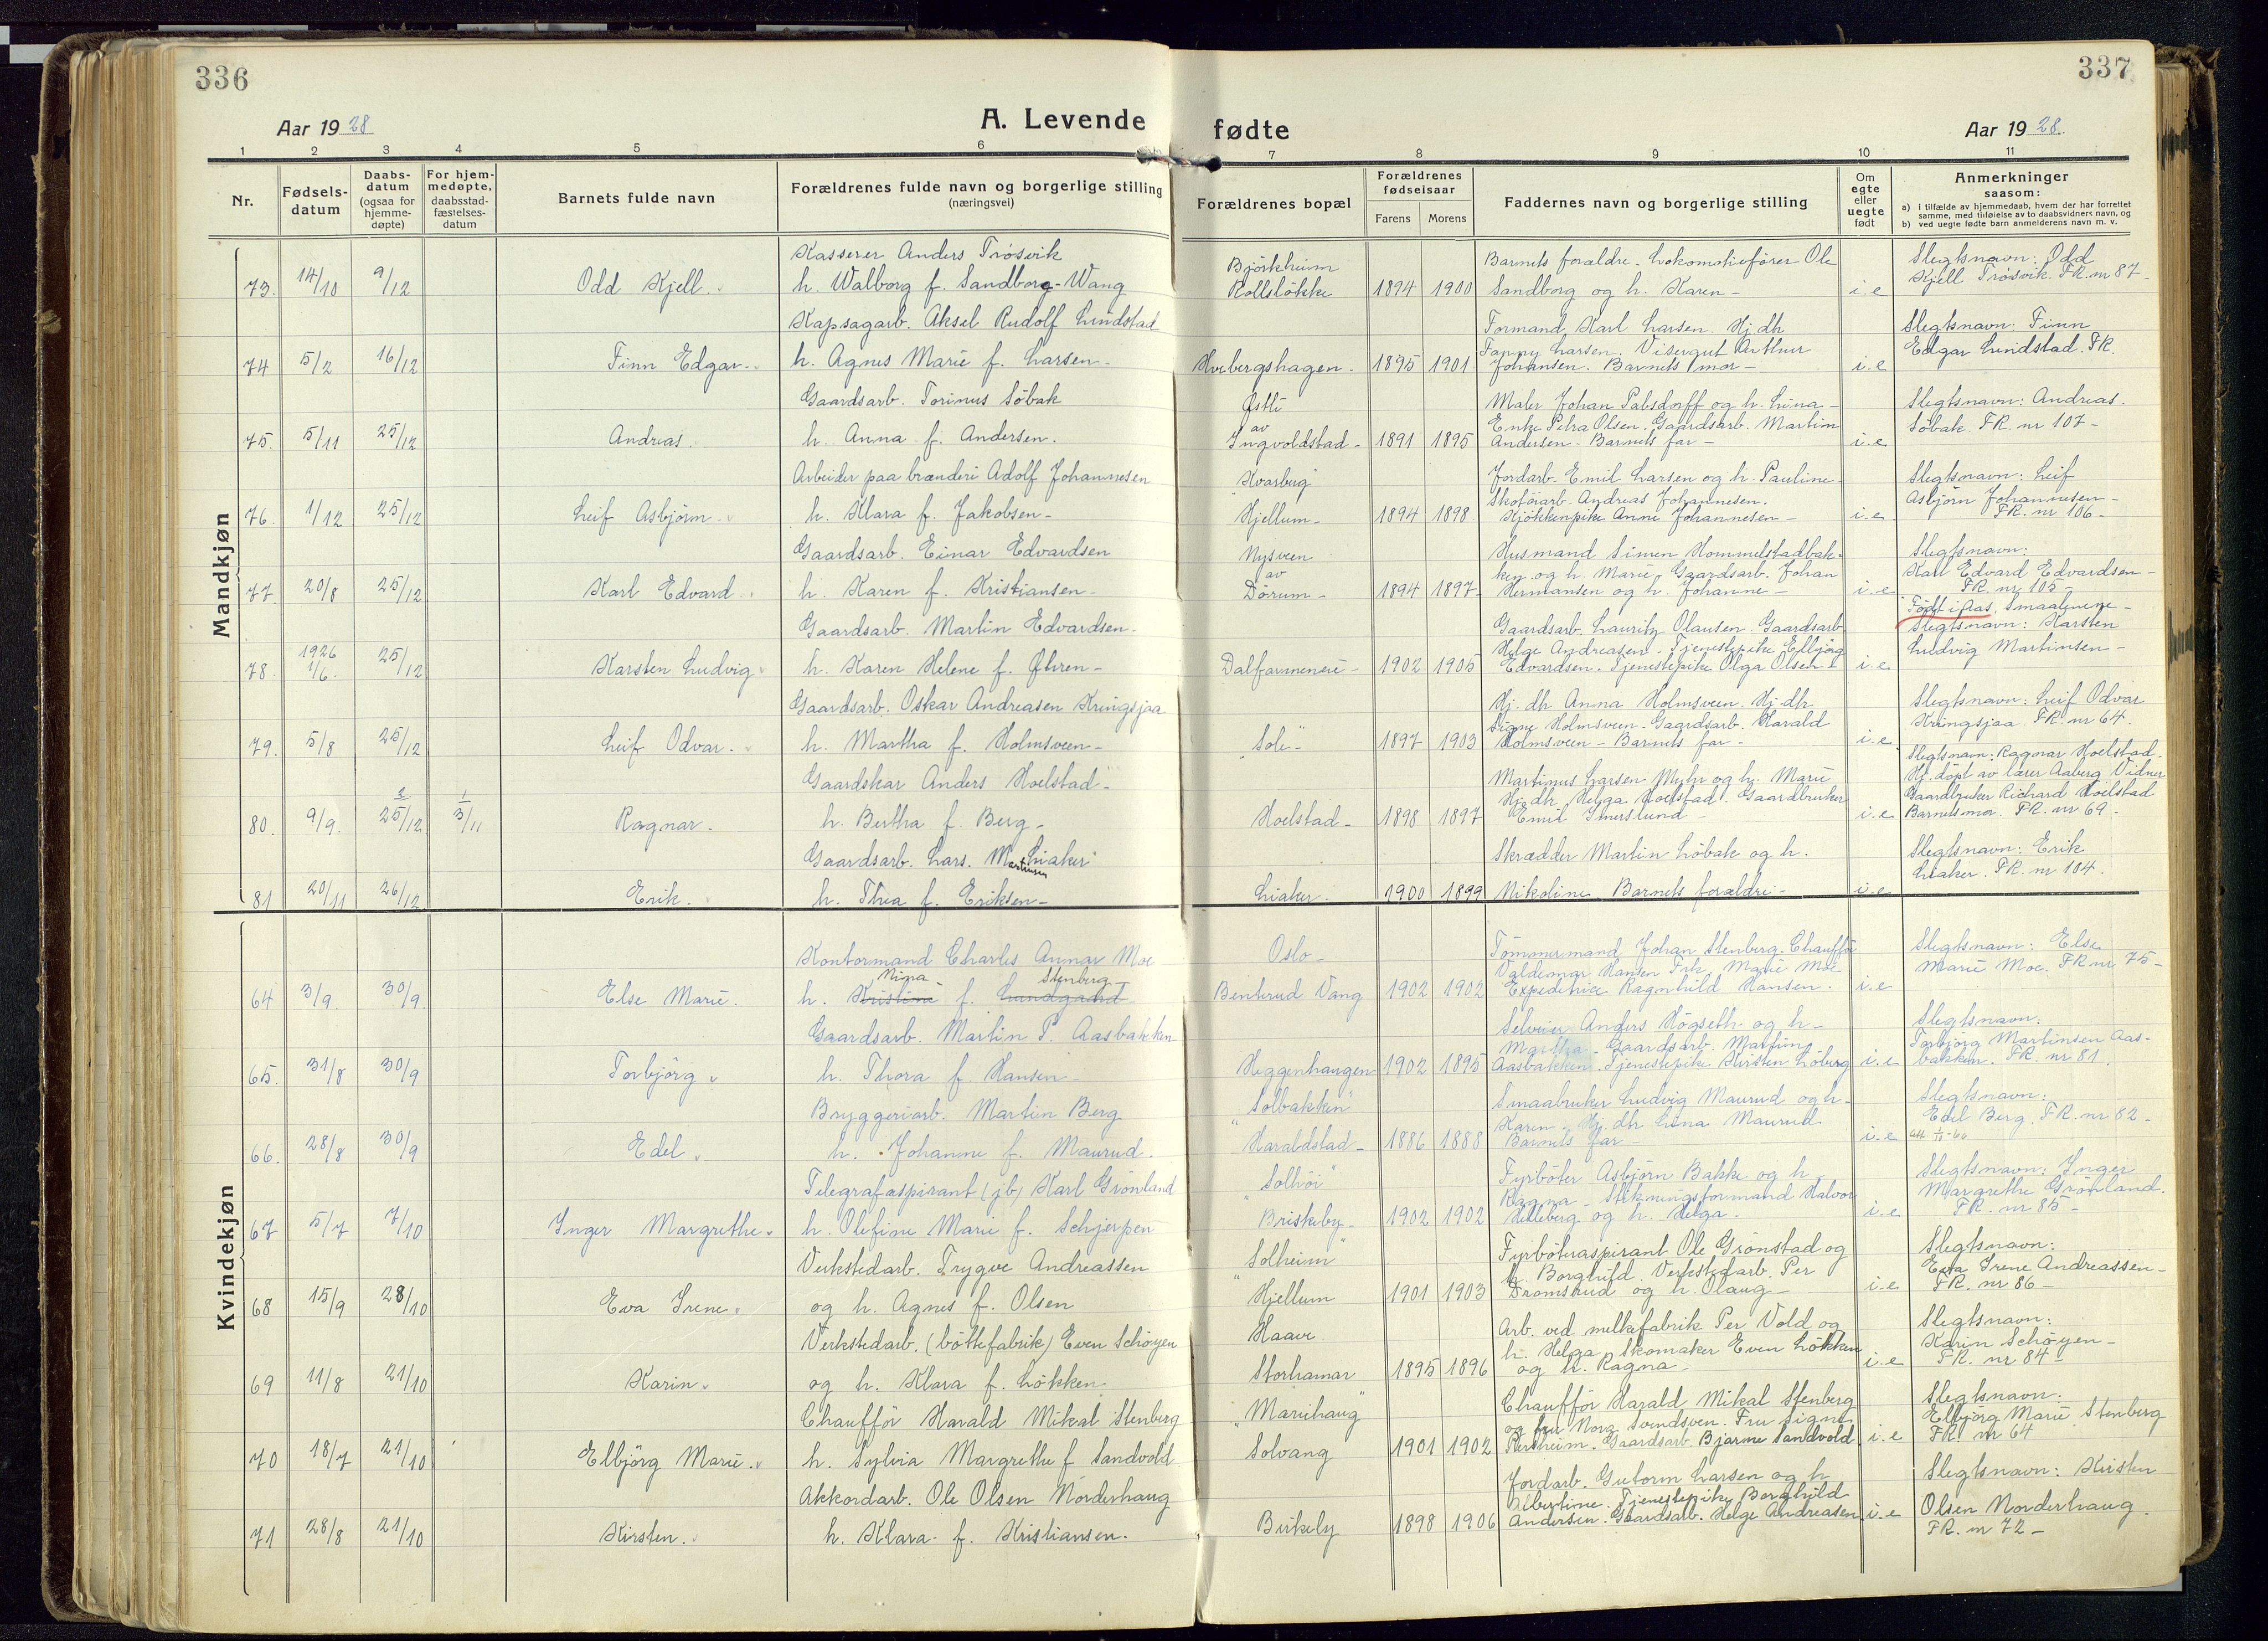 336
337
Aar 1928
A. Levende fødte
Aar 1928.
1 2 3 4 5 6 7 8 9 10 11
Nr.
Fødsels-
datum
Daabs-
datum
(ogsaa for
hjemme-
døpte)
For hjem-
medøpte,
daabsstad-
fæstelses-
datum
Barnets fulde navn
Forældrenes fulde navn og borgerlige stilling
(næringsvei)
Forældrenes bopæl
Forældrenes
fødselsaar
Farens Morens
Faddernes navn og borgerlige stilling
Om
egte
eller
uegte
født
Anmerkninger
saasom:
a) i tilfælde av hjemmedaab, hvem der har forrettet
samme, med tilføielse av to daabsvidners navn, og
b) ved uegte fødte barn anmelderens navn m. v.
Mandkjøn
73. 14/10 9/12 Odd Kjell.
Kasserer Anders Trösvik
h. Walborg f. Sandborg-Wang
Björkheim
Rollsløkke 1894 1900
Barnets forældre. Lokomotivfører Ole
Sandborg og h. Karen – i.e
Slegtsnavn: Odd
Kjell Trösvik. FR. nr 87–
74 5/2 16/12 Finn Edgar.
Kapsagarb. Aksel Rudolf Lundstad
h. Agnes Marie f. Larsen–
Hvebergshagen. 1895 1901
Formand Karl Larsen. Hj.dtr
Fanny Larsen. Visergut Arthur
Johansen. Barnets mor – i.e
Slegtsnavn: Finn
Edgar Lundstad. FR.
75. 5/11 25/12 Andreas.
Gaardsarb. Torinus Söbak
h. Anna f. Andersen.
Østli
av
Ingvoldstad– 1891 1895
Maler Johan Palsdorff og h. Lina–
Enke Petra Olsen. Gaardsarb. Martin
Andersen. Barnets far – i.e
Slegtsnavn: Andreas.
Söbak. FR. nr 107–
76. 1/12 25/12 Leif Asbjörn.
Arbeider paa brænderi Adolf Johannesen
h. Klara f. Jakobsen–
Kvarberg
Hjellum– 1894 1898
Jordarb. Emil Larsen og h. Pauline–
Skotöiarb. Andreas Johannesen.
Kjökkenpike Anne Johannesen – i.e
Slegtsnavn: Leif
Asbjörn Johannesen–
FR. nr 106–
77. 20/8 25/12 Karl Edvard
Gaardsarb. Einar Edvardsen
h. Karen f. Kristiansen–
Nysveen
av
Dørum– 1894 1897
Husmand Simen Hommelstadbak-
ken og h. Marie. Gaardsarb. Johan
Hermansen og h. Johanne – i.e
Slegtsnavn:
Karl Edvard Edvardsen–
FR. nr 105–
78. 1926 1/6. 25/12 Karsten Ludvig
Gaardsarb. Martin Edvardsen.
h. Karen Helene f. Öhren–
Dalfarmeneie– 1902 1905
Gaardsarb. Lauritz Olausen. Gaardsarb.
Helge Andreasen. Tjenestepike Ellbjörg
Edvardsen. Tjenestepike Olga Olsen – i.e
Født i Aas, Smaalenene–
Slegtsnavn: Karsten
Ludvig Martinsen–
79. 5/8 25/12 Leif Odvar.
Gaardsarb. Oskar Andreasen Kringsjaa
h. Martha f. Holmsveen–
Sole– 1897 1903
Hj. dtr Anna Holmsveen. Hj.dtr
Signe Holmsveen. Gaardsarb. Harald
Holmsveen – Barnets far – i.e
Slegtsnavn: Leif Odvar
Kringsjaa FR. nr 64.
80. 9/9. 2 25/12 1 3/11 Ragnar.
Gaardskar Anders Hoelstad–
h. Bertha f. Berg–
Hoelstad– 1898 1897
Martinus Larsen Myhr og h. Marie
Hj. dtr Helga Hoelstad. Gaardbruker
Emil Imerslund – i.e
Slegtsnavn: Ragnar Hoelstad.
Hj. døpt av lærer Aaberg. Vidner
Gaardbruker Richard Hoelstad
Barnets mor. FR. nr 69.
81 20/11 26/12 Erik.
Gaardsarb. Lars. Martinsen Liaker
h. Thea f. Eriksen–
Liaker. 1900 1899
Skrædder Martin Löbak og h.
Nikoline. Barnets forældre – i.e
Slegtsnavn: Erik
Liaker. FR. nr 104.
Kvindekjøn
64 3/9. 30/9. Else Marie.
Kontormand Charles Annar Moe
Nina Stenberg
h. Kristine f. Lundgaard
Oslo–
Bentrud Vang 1902 1902
Tömmermand Johan Stenberg. Chaufför
Valdemar Hansen Frk. Marie Moe
Expeditrice Ragnhild Hansen. i.e
Slegtsnavn: Else
Marie Moe. FR nr 75–
65. 31/8 30/9 Torbjörg
Gaardsarb. Martin P. Aasbakken
h. Thora f. Hansen–
Heggenhaugen 1902 1895
Selveier Anders Högseth og h–
Martha – Gaardsarb. Martin
Aasbakken. Tjenestepike Kirsten Löberg i.e
Slegtsnavn:
Torbjörg Martinsen Aas-
bakken. FR. nr 81.
66. 28/8 30/9 Edel
Bryggeriarb. Martin Berg
h. Johanne f. Maurud.
Solbakken"
"Haraldstad– 1886 1888
Smaabruker Ludvig Maurud og h–
Karen – Hj.dtr Lina Maurud
Barnets far – i.e
Slegtsnavn:
Edel Berg. FR. nr 82–
67 5/7 7/10 Inger Margrethe.
Telegrafaspirant (jb) Karl Grönland
h. Olefine Marie f. Schjerpen
"Solhöi"
Briskeby– 1902 1902
Fyrböter Asbjörn Bakke og h
Ragna – Stikningsformand Halvor
Helleberg og h. Helga. i.e
Slegtsnavn: Inger
Margrethe Grönland.
FR. nr 85–
68 15/9 28/10 Eva Irene.
Verkstedarb. Trygve Andreassen
og h. Agnes f. Olsen
"Solheim"
Hjellum 1901 1903
Fyrböteraspirant Ole Grönstad og
h. Borghild. Verkstedarb. Per
Dromsrud og h. Olaug – i.e
Slegtsnavn:
Eva Irene Andreassen–
FR. nr 86–
69 11/8 21/10 Karin.
Verkstedarb. (böttefabrik) Even Schöyen
og h. Klara f. Lökken.
Haave
Storhamar 1895 1896
Arb. ved melkefabrik Per Vold og
h. Helga. Skomaker Even Lökken
og h. Ragna– i.e
Slegtsnavn:
Karin Schöyen–
FR. nr 84–
70 18/7 21/10 Elbjörg Marie.
Chaufför Harald Mikal Stenberg
h. Sylvia Margrethe f Sandvold
"Mariehaug"
Solvang 1901 1902
Chaufför Harald Mikal Stenberg
og fru Norg Svendsven. Fru Signe
Gaardsarb. Bjarne Sandvold i.e
Slegtsnavn:
Elbjörg Marie Stenberg
FR. nr 64
71 28/8 21/10 Kirsten.
Akkordarb. Ole Olsen Norderhaug
h. Klara f. Kristiansen.
Birkely 1898 1906
Jordarb. Gutorm Larsen og h
Albertine. Tjenestepike Borghild
Andersen. Gaardsarb. Helge Andreasen i.e
Slegtsnavn: Kirsten
Olsen Norderhaug.
FR. nr 72–